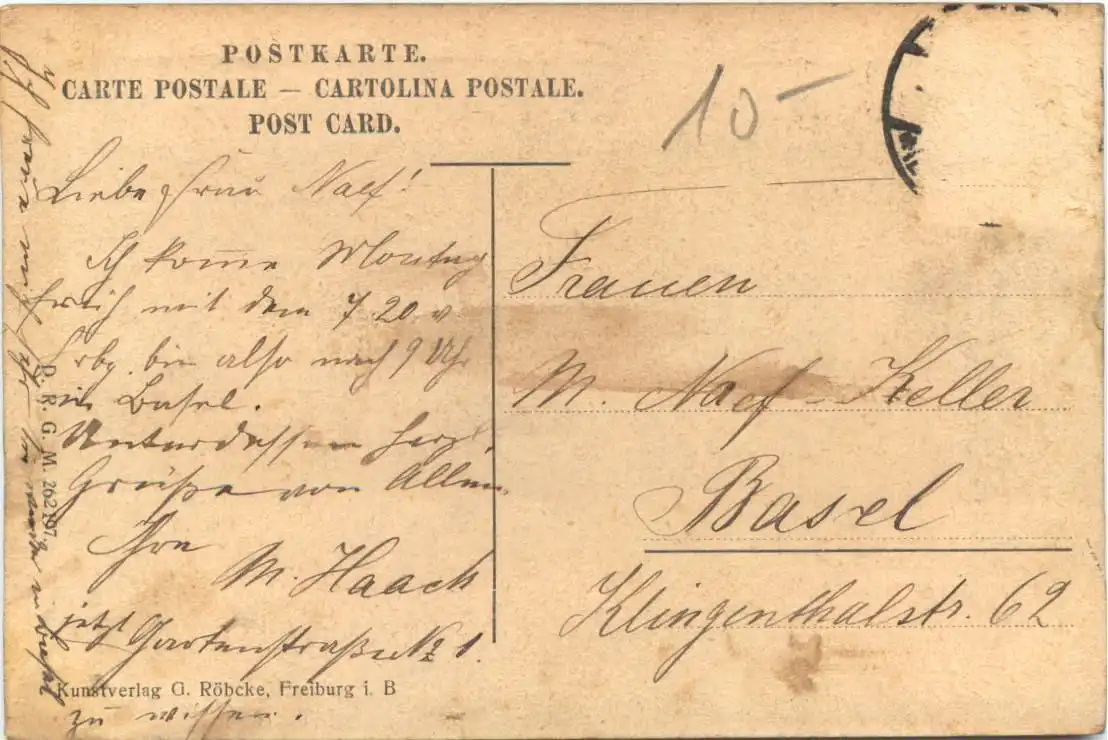 POSTKARTE.
CARTE POSTALE — CARTOLINA POSTALE.
POST CARD.
10-
Liebe Frau Naef!
Ich kom̅e Montag
früh mit dem 7.20 v
Frbg. bin also nach 9 Uhr
in Basel.
Unterdessen herzl.
Grüße von Allen
Ihre
M. Haach
jetzt Gartenstraße No 1.
Ich freue mich
zu wissen.
D. R. G. M. 262197
Kunstverlag G. Röbcke, Freiburg i. B
Frauen
M. Naef-Keller
Basel
Klingenthalstr. 62